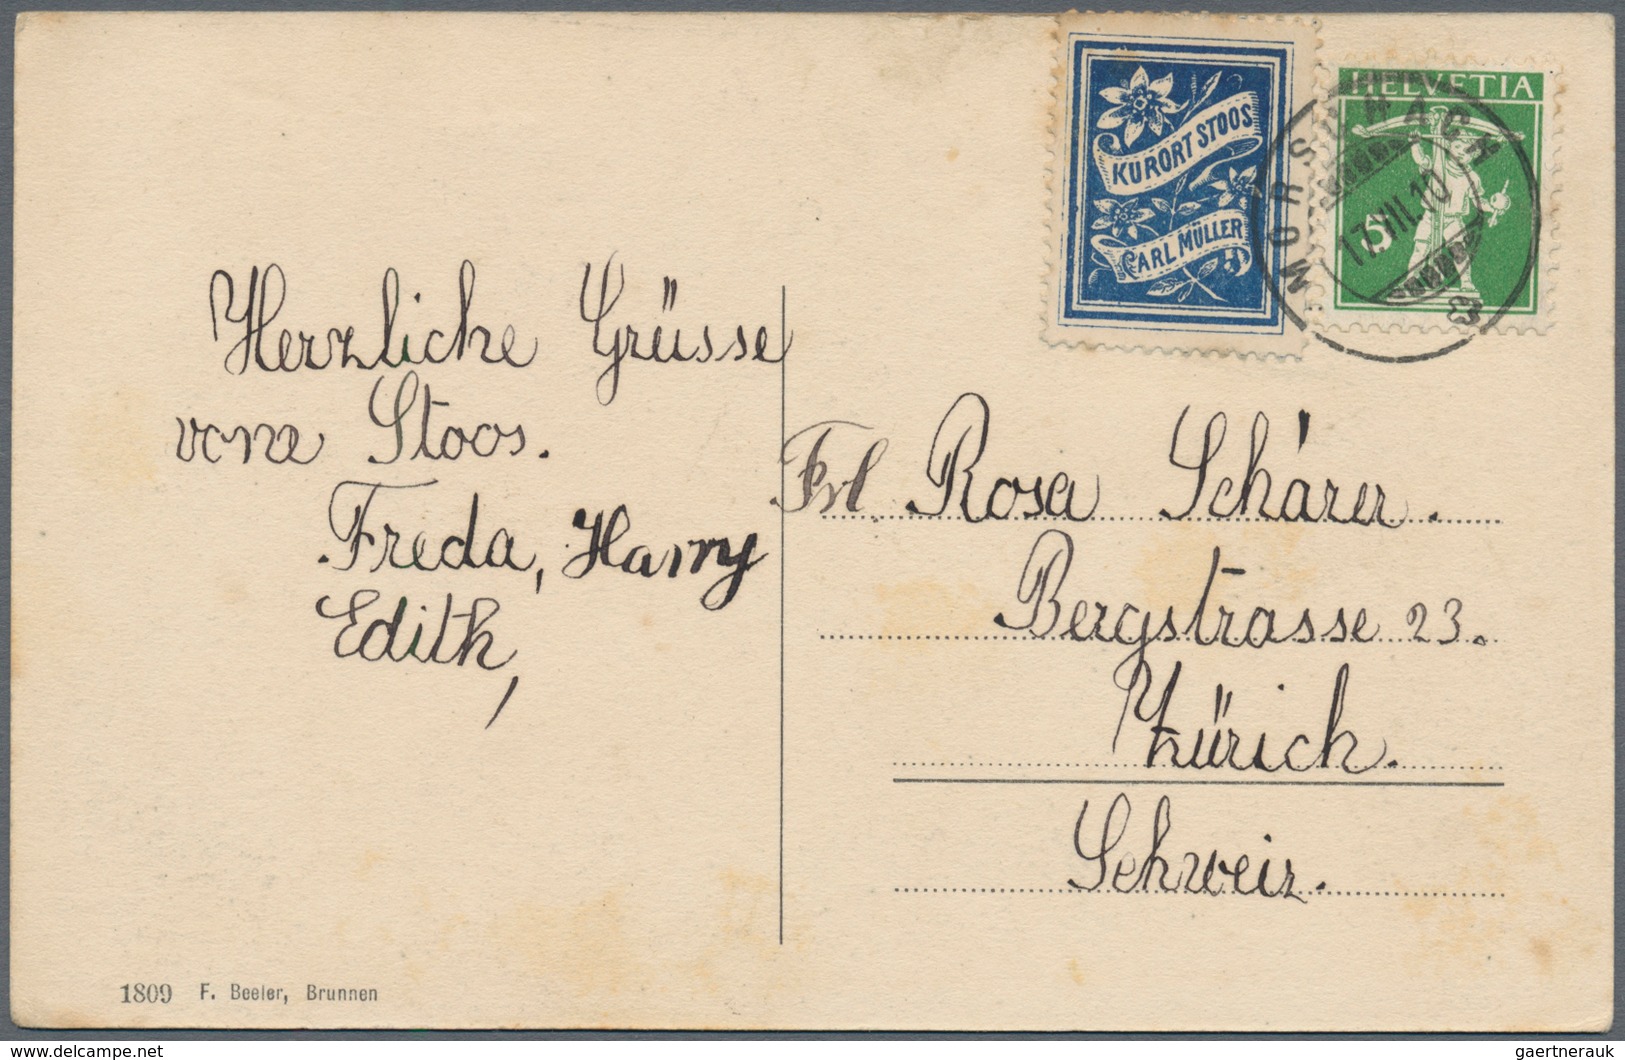 KURORT STOOS
CARL MÜLLER
HELVETIA
5
MORSCHACH
17.VIII.10
Herzliche Grüsse
vom Stoos.
Freda, Harry
Edith,
Frl. Rosa Schärer.
Bergstrasse 23.
Zürich.
Schweiz.
1809 F. Beeler, Brunnen
delcampe.net
gaertnerauk